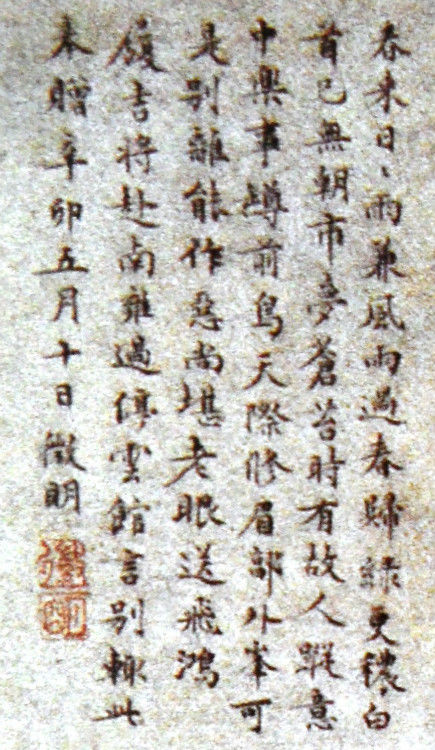 春来日〻雨兼風雨過春歸綠更穠白
首已無朝市夢蒼苔時有故人蹤意
中樂事罇前鳥天際修眉郭外峯可
是別離能作惡尚堪老眼送飛鴻
履吉將赴南雍過停雲館言別輙此
奉贈辛卯五月十日徵明
徵明